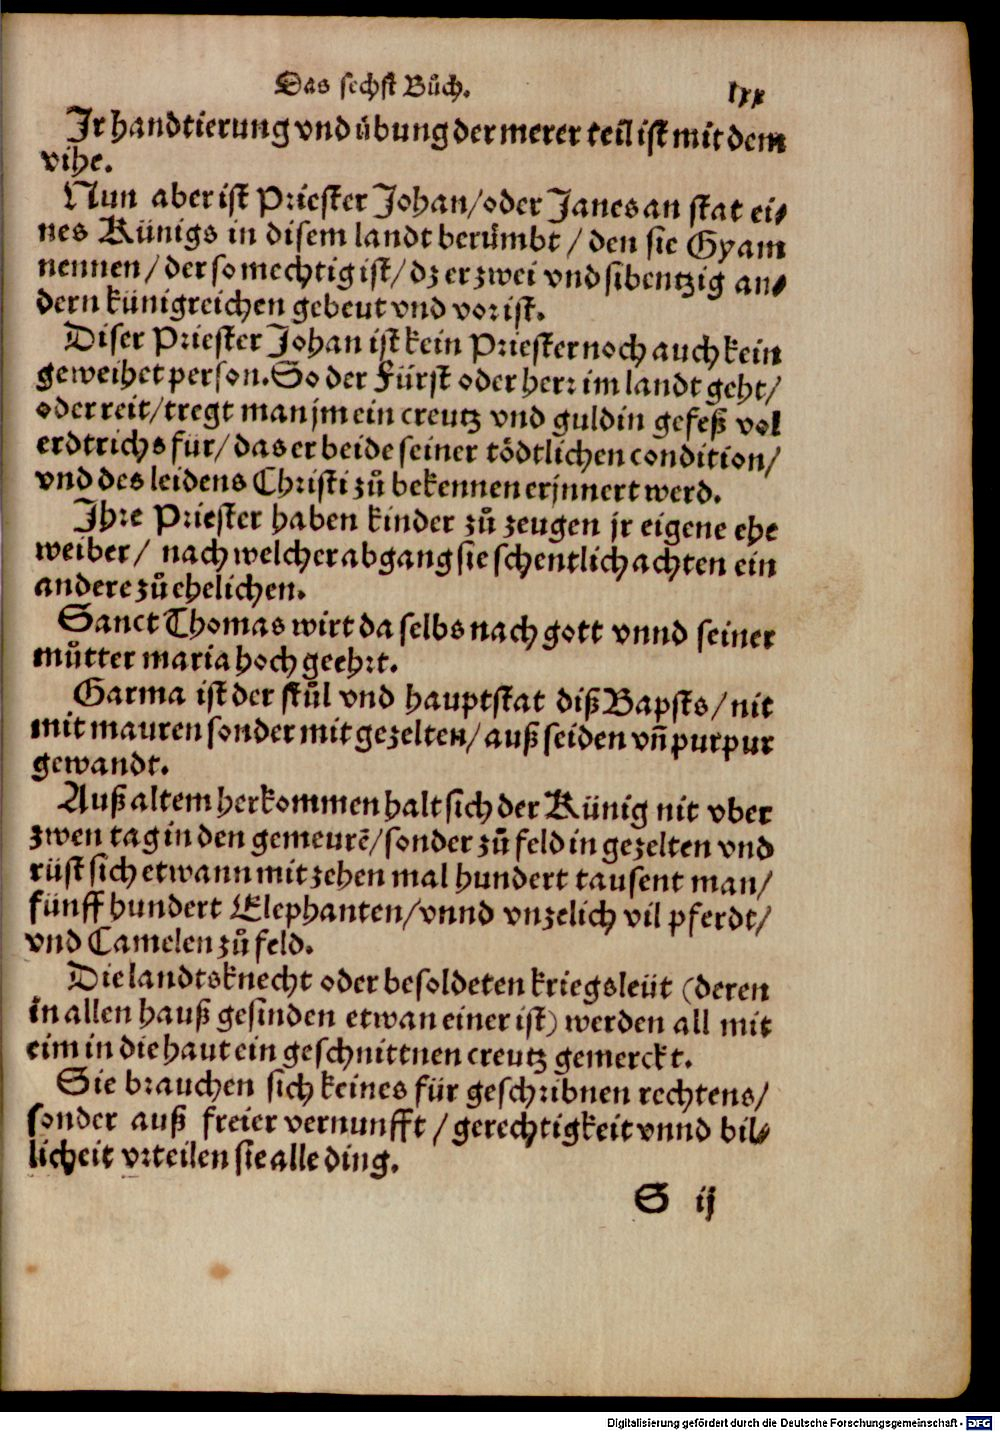 Das sechst Bůch. lxx
Jr handtierung vnd übung der merer teil ist mit dem
vihe.
Nun aber ist Priester Johan/oder Janes an stat ei-
nes Künigs in disem landt berümbt / den sie Gyam
nennen/der so mechtig ist/dz er zwei vnd sibentzig an-
dern künigreichen gebeut vnd vor ist.
Diser Priester Johan ist kein Priester noch auch kein
geweihet person. So der Fürst oder herr im landt geht/
oder reit/tregt man jm ein creutz vnd guldin gefeß vol
erdtrichs für/das er beide seiner tödtlichen condition/
vnd des leidens Christi zů bekennen erjnnert werd.
Jhre Priester haben kinder zů zeugen jr eigene ehe
weiber/ nach welcher abgang sie schentlich achten ein
andere zů ehelichen.
Sanct Thomas wirt da selbs nach gott vnnd seiner
můtter maria hoch geehrt.
Garma ist der stůl vnd hauptstat diß Bapsts/nit
mit mauren sonder mit gezelten/auß seiden vñ purpur
gewandt.
Auß altem herkommen halt sich der Künig nit vber
zwen tag in den gemeurẽ/sonder zů feld in gezelten vnd
rüst sich etwann mit zehen mal hundert tausent man/
fünff hundert Elephanten/vnnd vnzelich vil pferdt/
vnd Camelen zů feld.
Die landtsknecht oder besoldeten kriegsleüt (deren
in allen hauß gesinden etwan einer ist) werden all mit
eim in die haut ein geschnittnen creutz gemerckt.
Sie brauchen sich keines für geschribnen rechtens/
sonder auß freier vernunfft /gerechtigkeit vnnd bil-
licheit vrteilen sie alle ding.
S ij
Digitalisierung gefördert durch die Deutsche Forschungsgemeinschaft - DFG